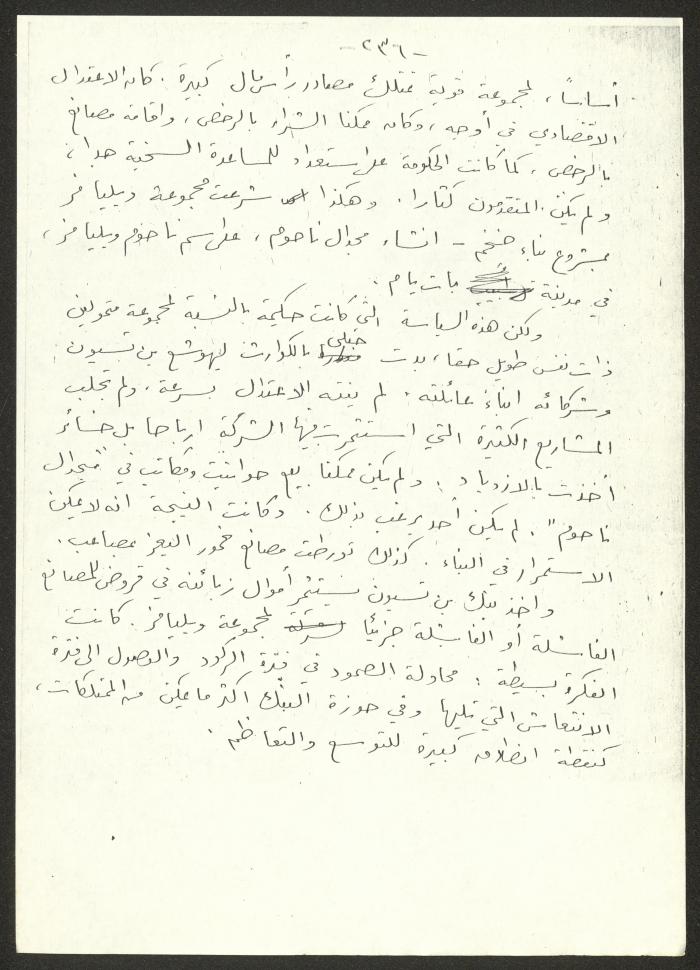 -٢٣٦-
أساساً، لمجموعة قوية تمتلك مصادر رأس مال كبيرة. كان الاعتدال
الاقتصادي في أوجه، وكان ممكنا الشراء بالرخص، واقامة مصانع
بالرخص، كما كانت الحكومة على استعداد للمساعدة السخية جدا،
ولم يكن المتقدمون كثارا. وهكذا شرعت مجموعة ويليامز
بمشروع بناء ضخم - انشاء مجدال ناحوم، على اسم ناحوم ويليامز،
في مدينة بات يام.
ولكن هذه السياسة التي كانت حكيمة بالنسبة لمجموعة متمولين
ذات نفس طويل حقا، بدت حبلى بالكوارث ليهوشع بن تسيون
وشركائه ابناء عائلته. لم ينته الاعتدال بسرعة، ولم تجلب
المشاريع الكثيرة التي استثمرت فيها الشركة ارباحا بل خسائر
أخذت بالازدياد. ولم يكن ممكنا بيع حوانيت ومكاتب في "مجدال
ناحوم". لم يكن أحد يرغب بذلك. وكانت النتيجة انه لا يمكن
الاستمرار في البناء. كذلك تورطت مصانع خمور اليعز بمصاعب.
واخذ بنك بن تسيون يستثمر أموال زبائنه في قروض للمصانع
الفاشلة أو الفاشلة جزئيا لمجموعة ويليامز. كانت
الفكرة بسيطة: محاولة الصمود في فترة الركود والوصول الى فترة
الانتعاش التي تليها وفي حوزة البنك اكثر ما يمكن من الممتلكات،
كنقطة انطلاق كبيرة للتوسع والتعاظم.